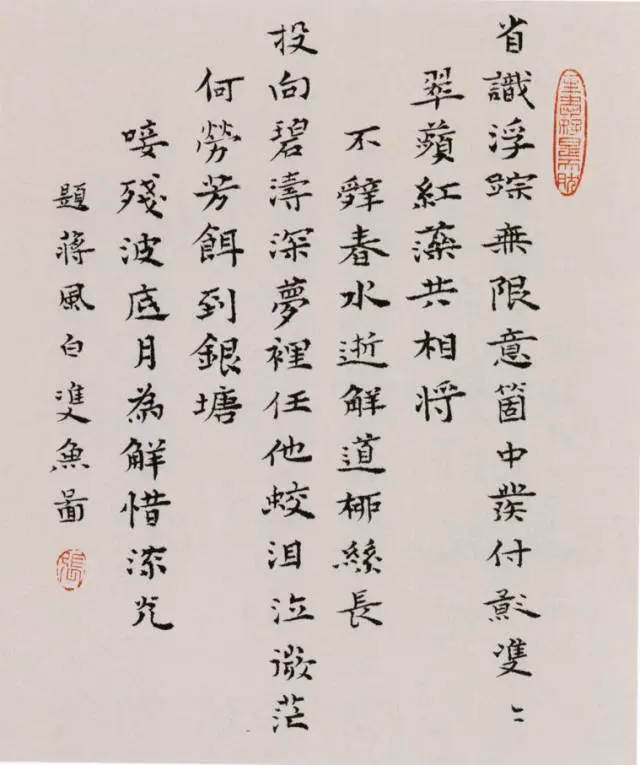 省識浮踪無限意箇中發付影雙〻
翠蘋紅藻共相將
不辭春水逝解道柳絲長
投向碧濤深夢裡任他蛟泪泣微茫
何勞芳餌到銀塘
唼殘波底月為解惜流光
題蔣風白雙魚啚
張